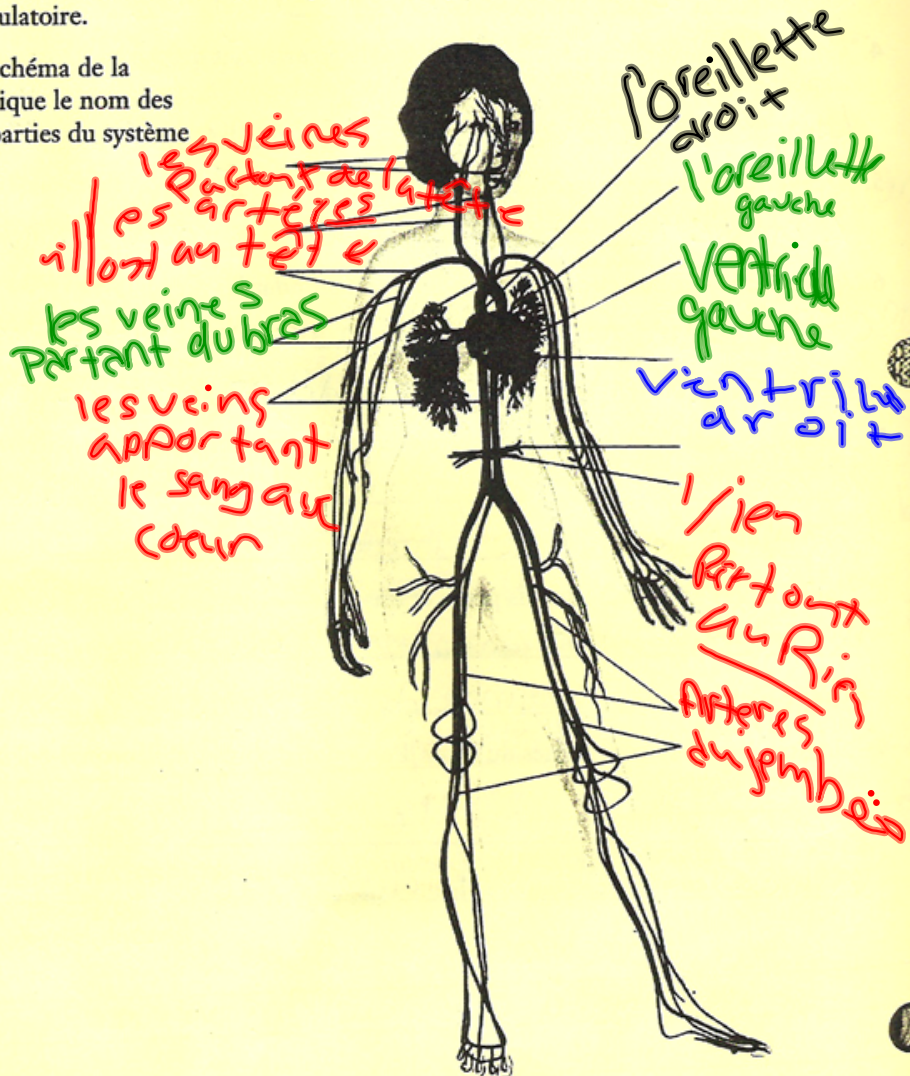 ulatoire.
chéma de la
ique le nom des
parties du système
les veines
Partant de la tête
les artères
au tête
les veines
Partant du bras
les veins
apportant
le sang aux
coeur
l'oreillette
droit
l'oreillette
gauche
Ventricule
gauche
droit
lien
Partant
au Rien
Artères
du jembes